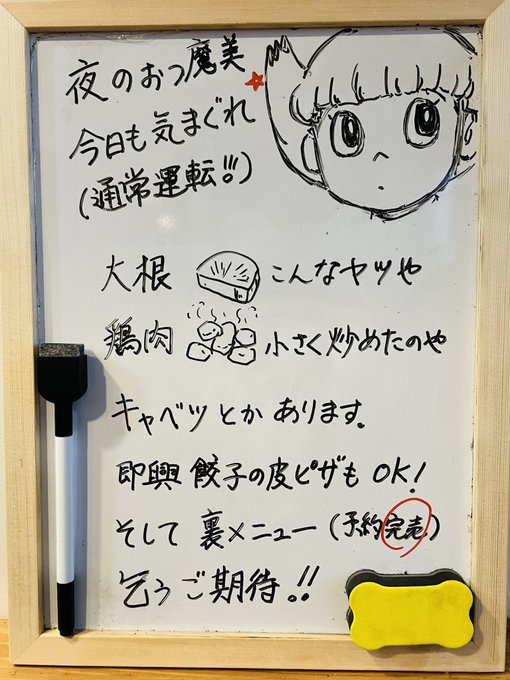 夜のおつ魔美
今日も気まぐれ
(通常運転!!!)
大根 こんなヤツや
鶏肉 小さく炒めたのや
キャベツとかあります。
即興 餃子の皮ピザもOK!
そして 裏メニュー(予約完売)
乞うご期待!!